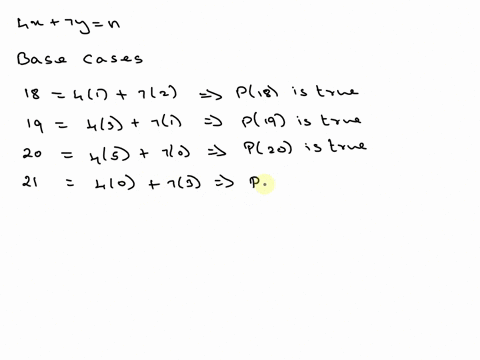 4x + 7y = n
Base cases
18 = 4(1) + 7(2) => P(18) is true
19 = 4(3) + 7(1) => P(19) is true
20 = 4(5) + 7(0) => P(20) is true
21 = 4(0) + 7(3) => P.